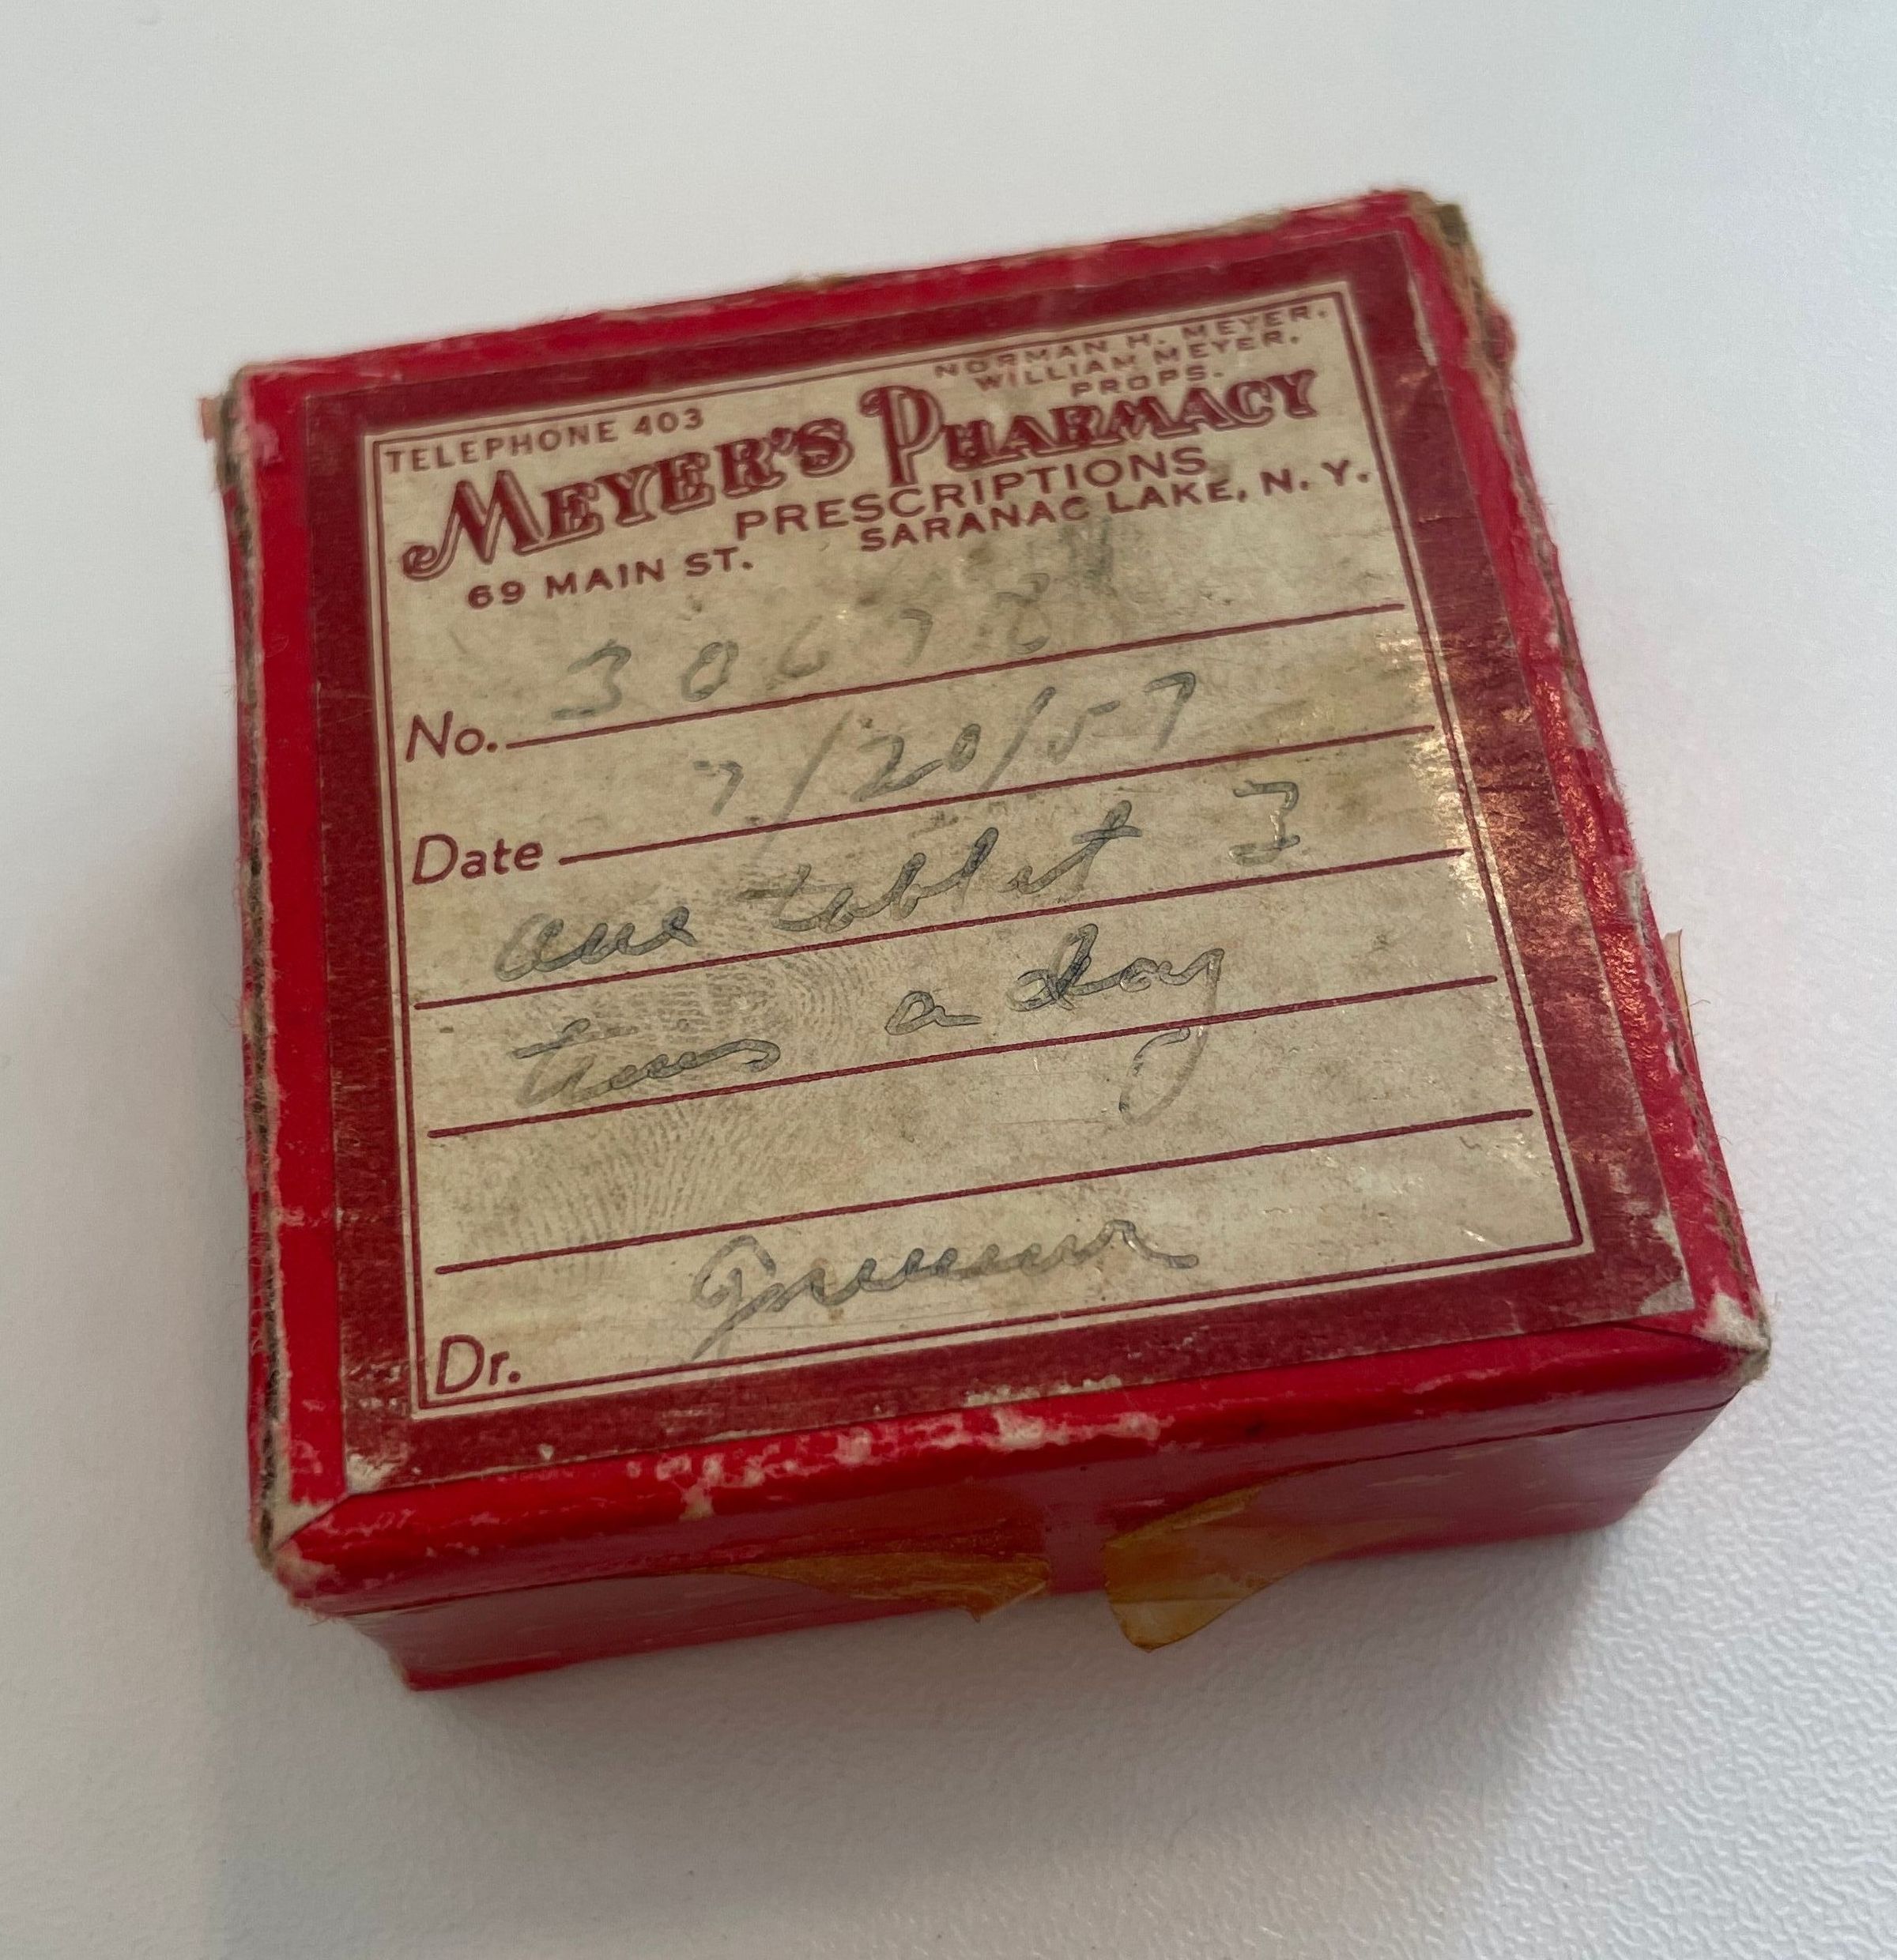 NORMAN H. MEYER.
WILLIAM MEYER.
PROPS.
TELEPHONE 403
MEYER'S PHARMACY
PRESCRIPTIONS
69 MAIN ST. SARANAC LAKE, N. Y.
No.
Date 7/20/57
one tablet 3
times a day
Dr.